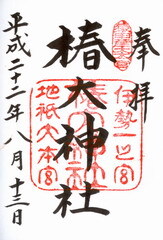 奉拝
伊勢一之宮
椿大神社
地祇大本宮
平成二十二年八月十三日